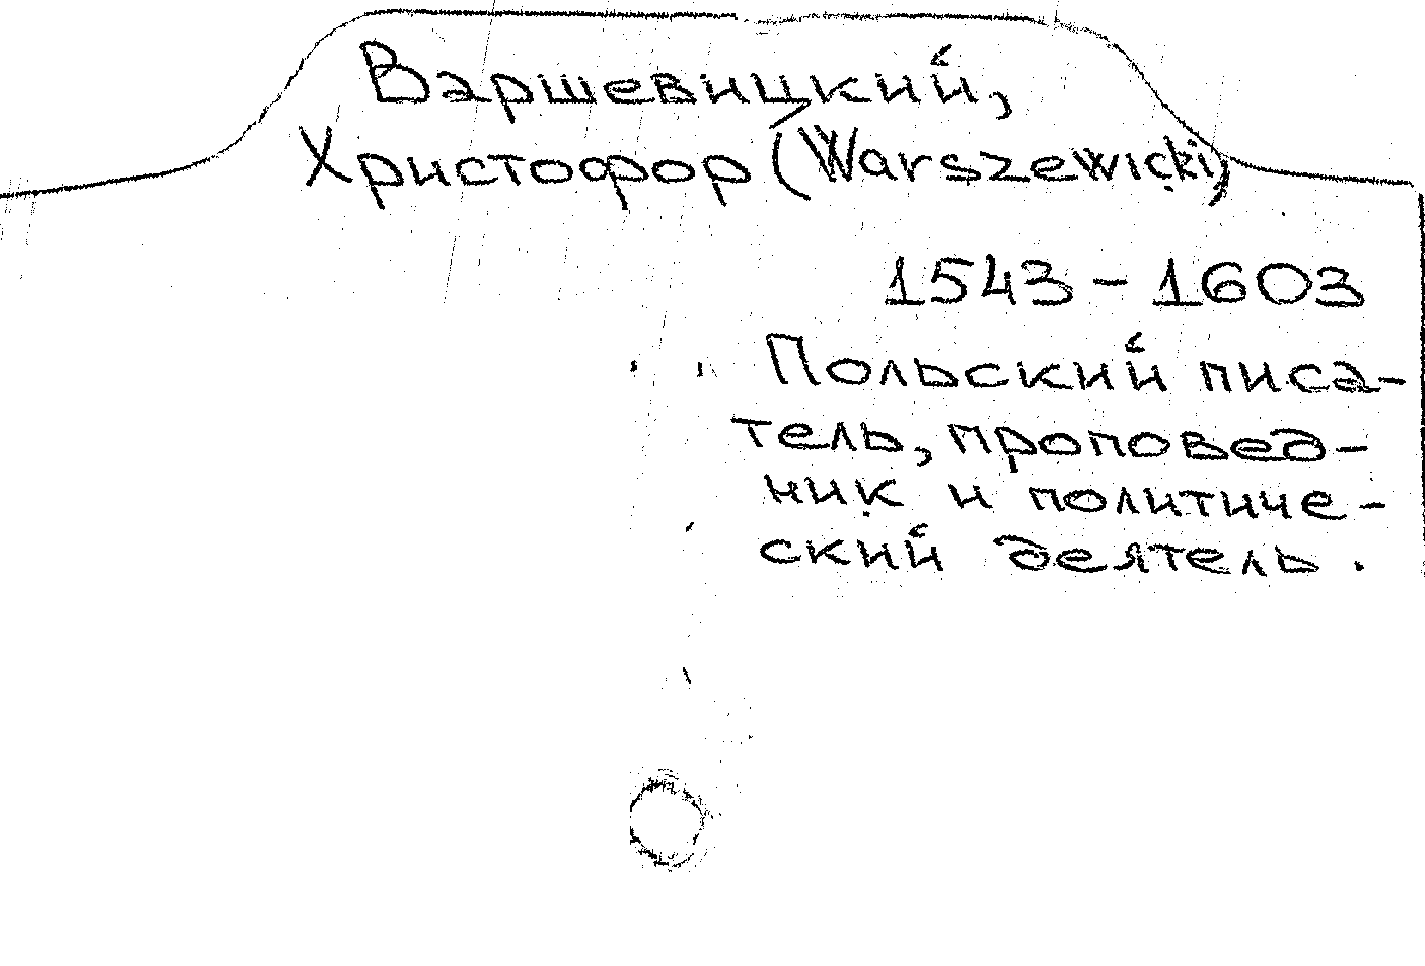 Варшевицкий,
Христофор (Warszewicki)
1543 - 1603
Польский писа-
тель, проповед-
ник и политиче-
ский деятель.